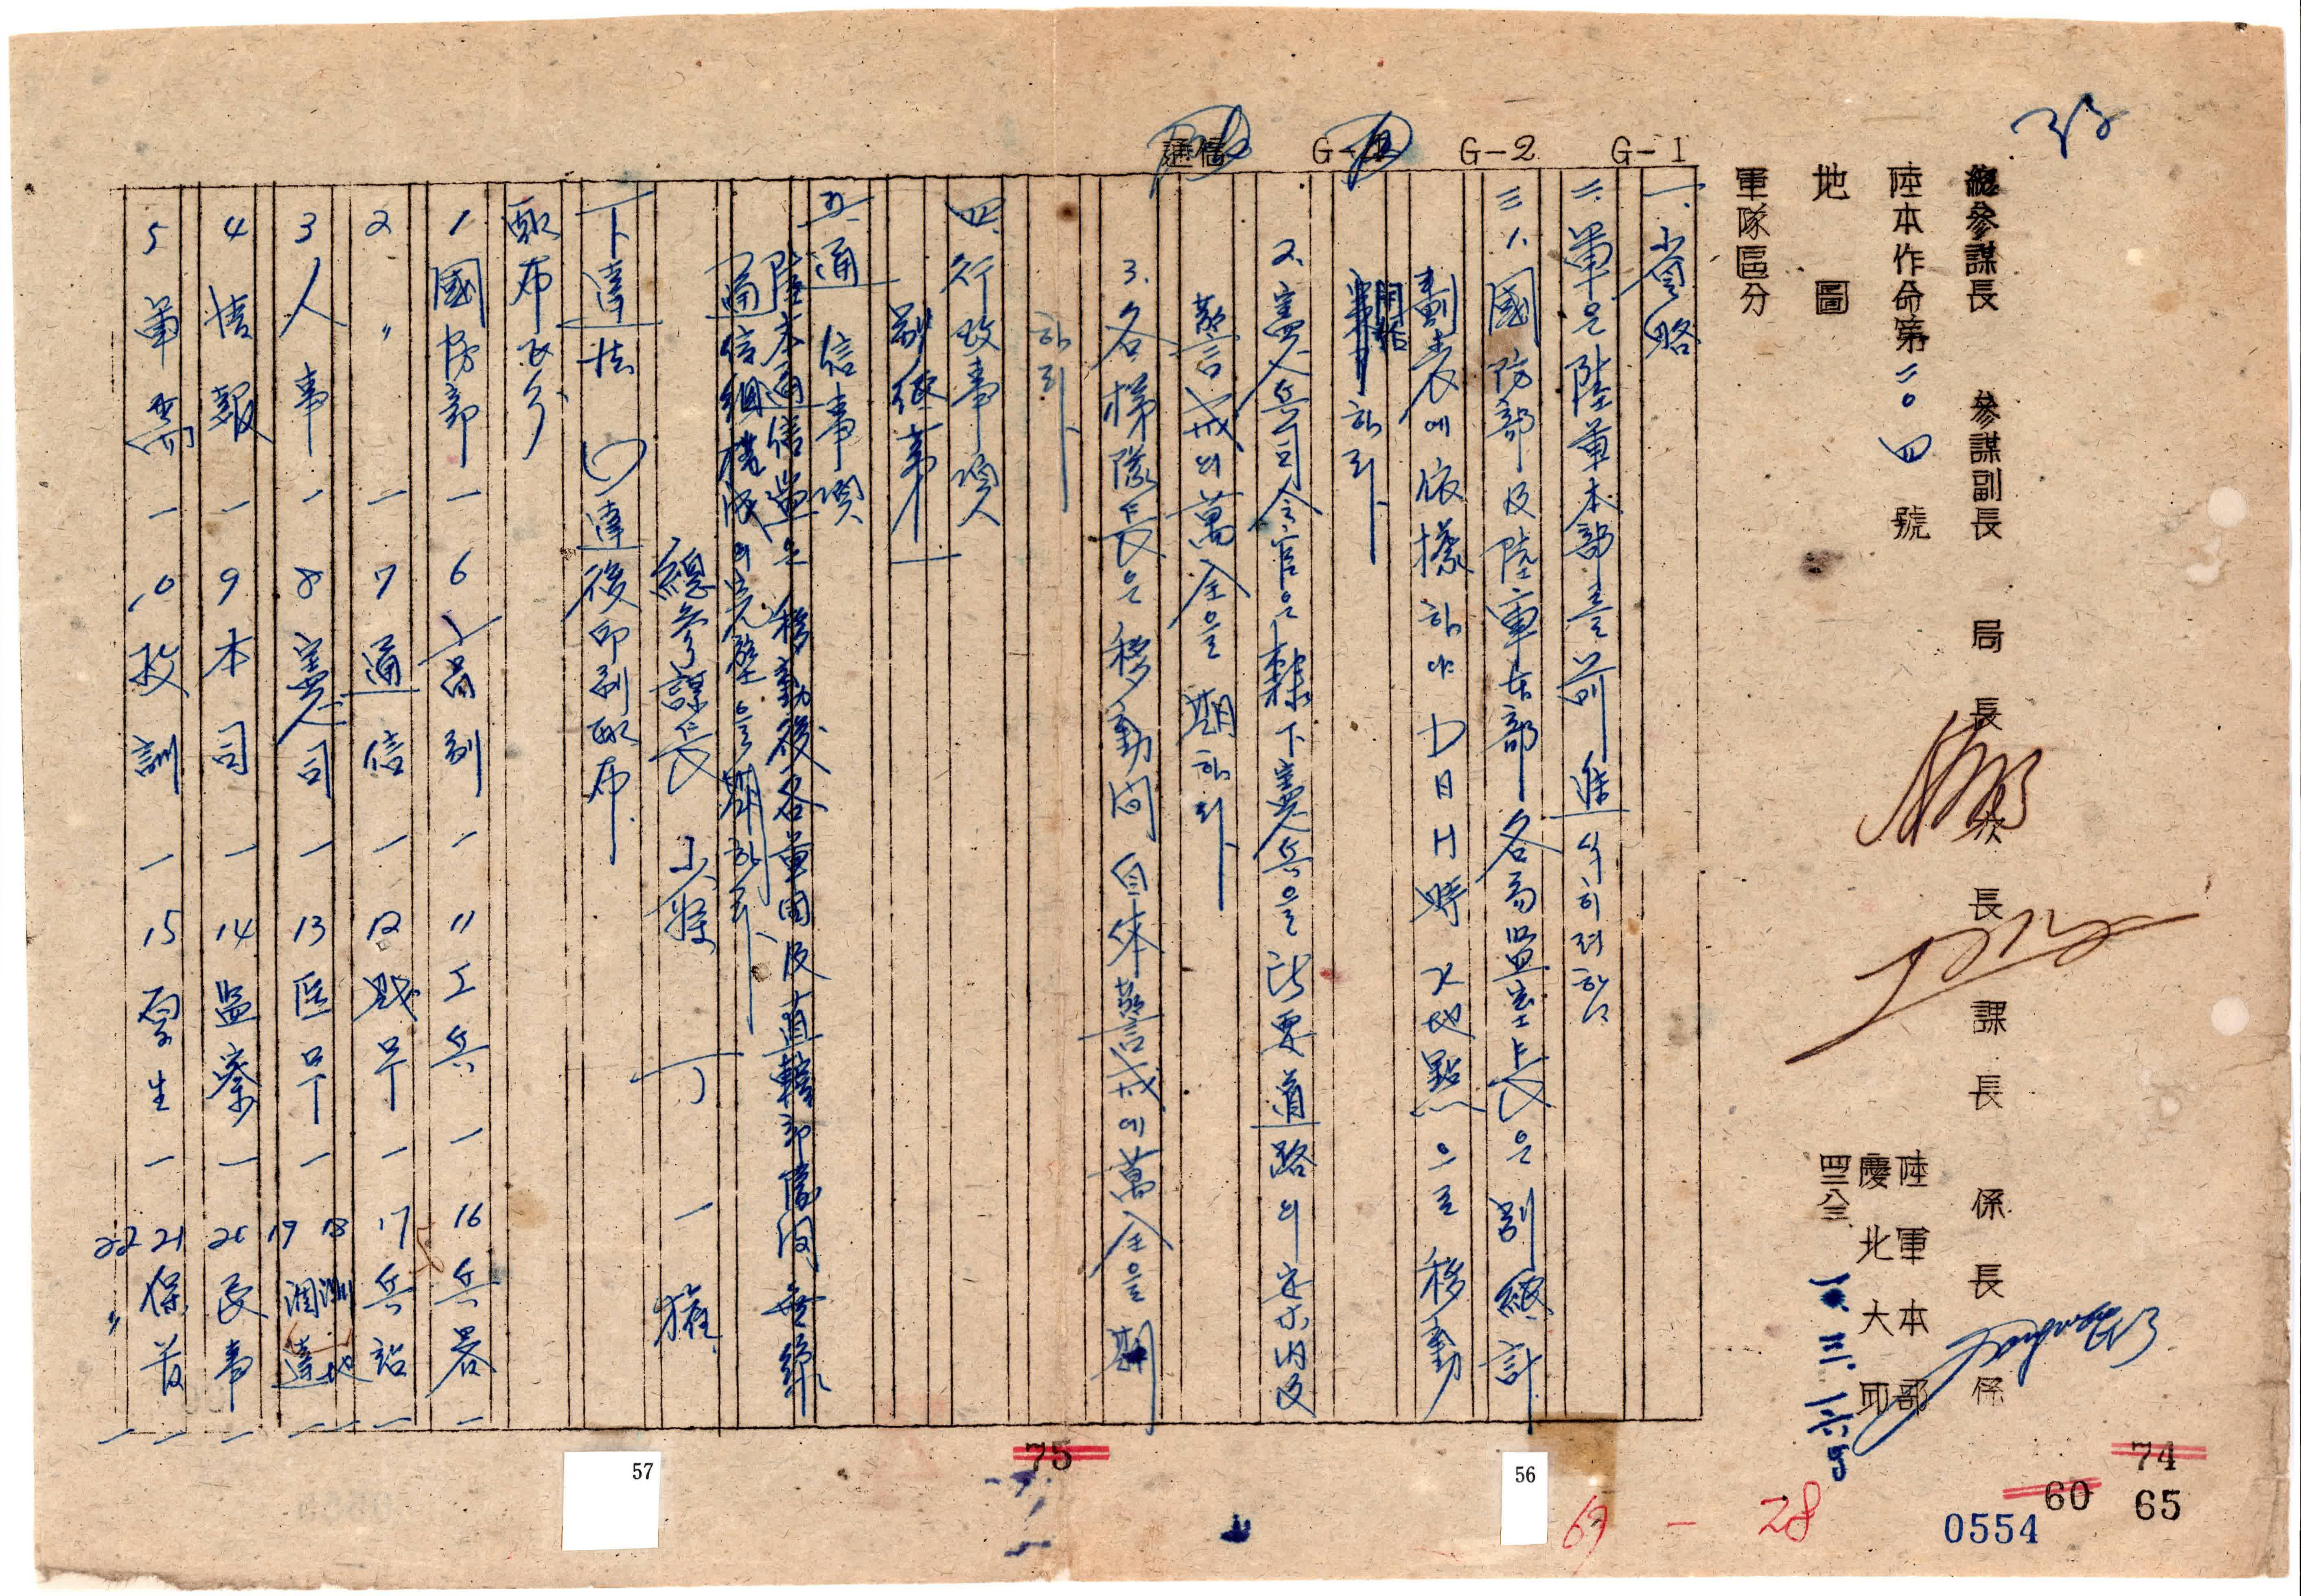 總參謀長 參謀副長 局長 次長 課長 係長 係
陸本作命第二〇四號
陸軍本部
慶北大邱
四二八三、一〇、三、一六時
地圖
軍隊區分
G-1
G-2
G-
通信
一、省略
二、軍은 陸軍本部를 前進식히려함
三 1. 國防部 及 陸軍本部 各局 監室長은 別紙計
劃表에 依據하야 D日 H時 X地點으로 移動
開始하라
2. 憲兵司令官은 隸下憲兵을 하 要道路의 案內 及
警戒의 萬全을 期하라
3. 各梯隊長은 移動間 自体警戒에 萬全을 期
하라
四、行政事項
別紙第一
五、通信事項
陸本通信監은 移動後 各軍團 及 直轄部隊間 無線
通信網構成의 完璧을 期하라
總參謀長 少將 丁一權
下達法 口達後印刷配布
配布区分
1 國防部 一 6 고급副 一 11 工兵 一 16 兵器 一
2 〃 一 7 通信 一 12 戰史 一 17 兵站 一
3 人事 一 8 憲司 一 13 医务 一 18 測地 一
19 調達 一
4 情報 一 9 本司 一 14 監察 一 20 民事 一
5 軍需 一 10 敎訓 一 15 厚生 一 21 保首 一
22 〃 一
57
75
56
69 - 28
0554
60
74
65